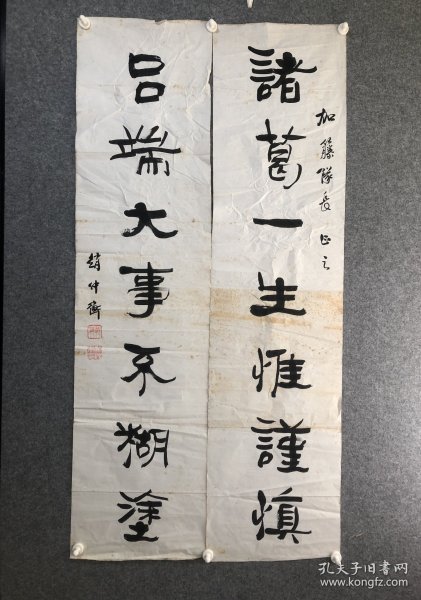 加藤隊長正之
諸葛一生惟謹慎
呂端大事不糊塗
趙仲衡
孔夫子旧书网
www.kongfz.com